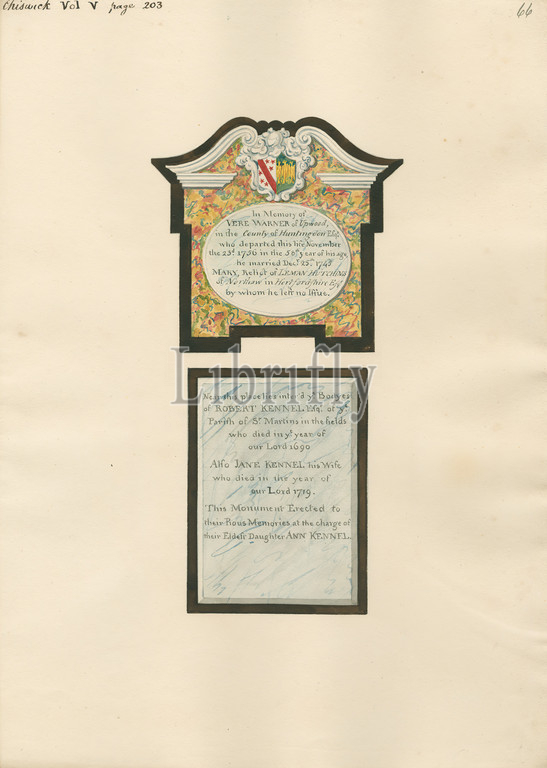 Chiswick Vol V page 203
66
In Memory of
VERE WARNER of Upwood,
in the County of Huntingdon Esqr.
who departed this life November
the 23d. 1756 in the 56th. year of his age
he married Decr. 25th.
MARY, Relict of LEMAN HUTCHINS
of Northaw in Hertfordshire Esqr.
by whom he left no Issue.
Librifly
Near this place lies interd ye. Bodyes
of ROBERT KENNEL Esqr. of ye.
Parish of St. Martins in the fields
who died in ye. year of
our Lord 1690
Also JANE KENNEL his Wife
who died in the year of
our Lord 1719.
This Monument Erected to
their Pious Memories at the charge of
their Eldest Daughter ANN KENNEL.